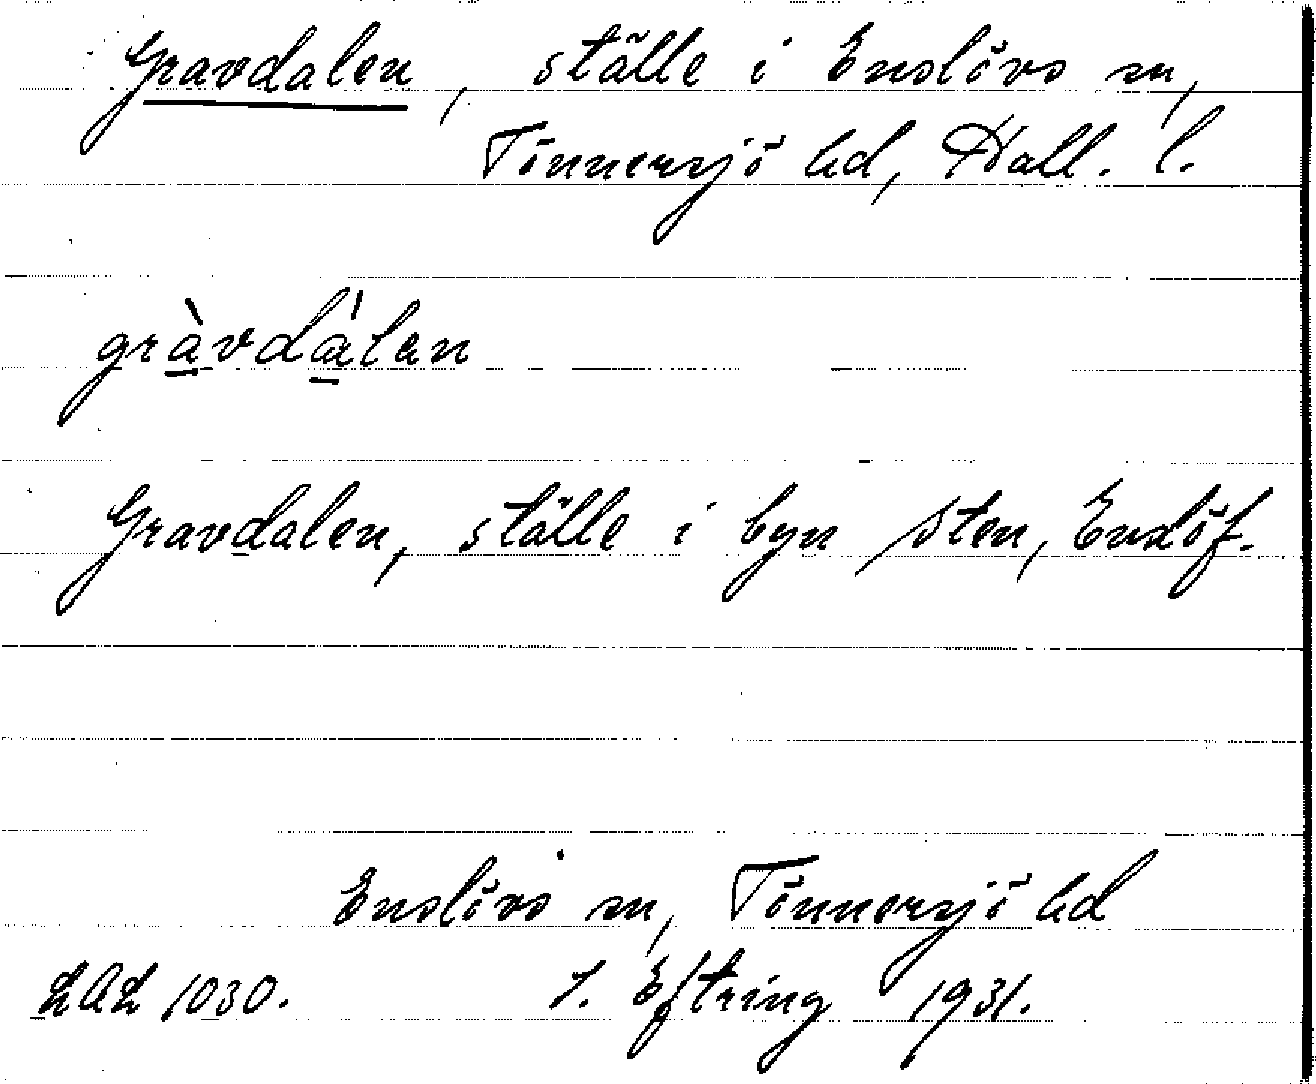 Gravdalen, ställe i Enslövs sn,
Tönnersjö hd, Hall. l.
gràvdàlan
Gravdalen, ställe i byn Sten, Enslöf.
Enslövs sn, Tönnersjö hd
LAL 1030. J. Eftring 1931.